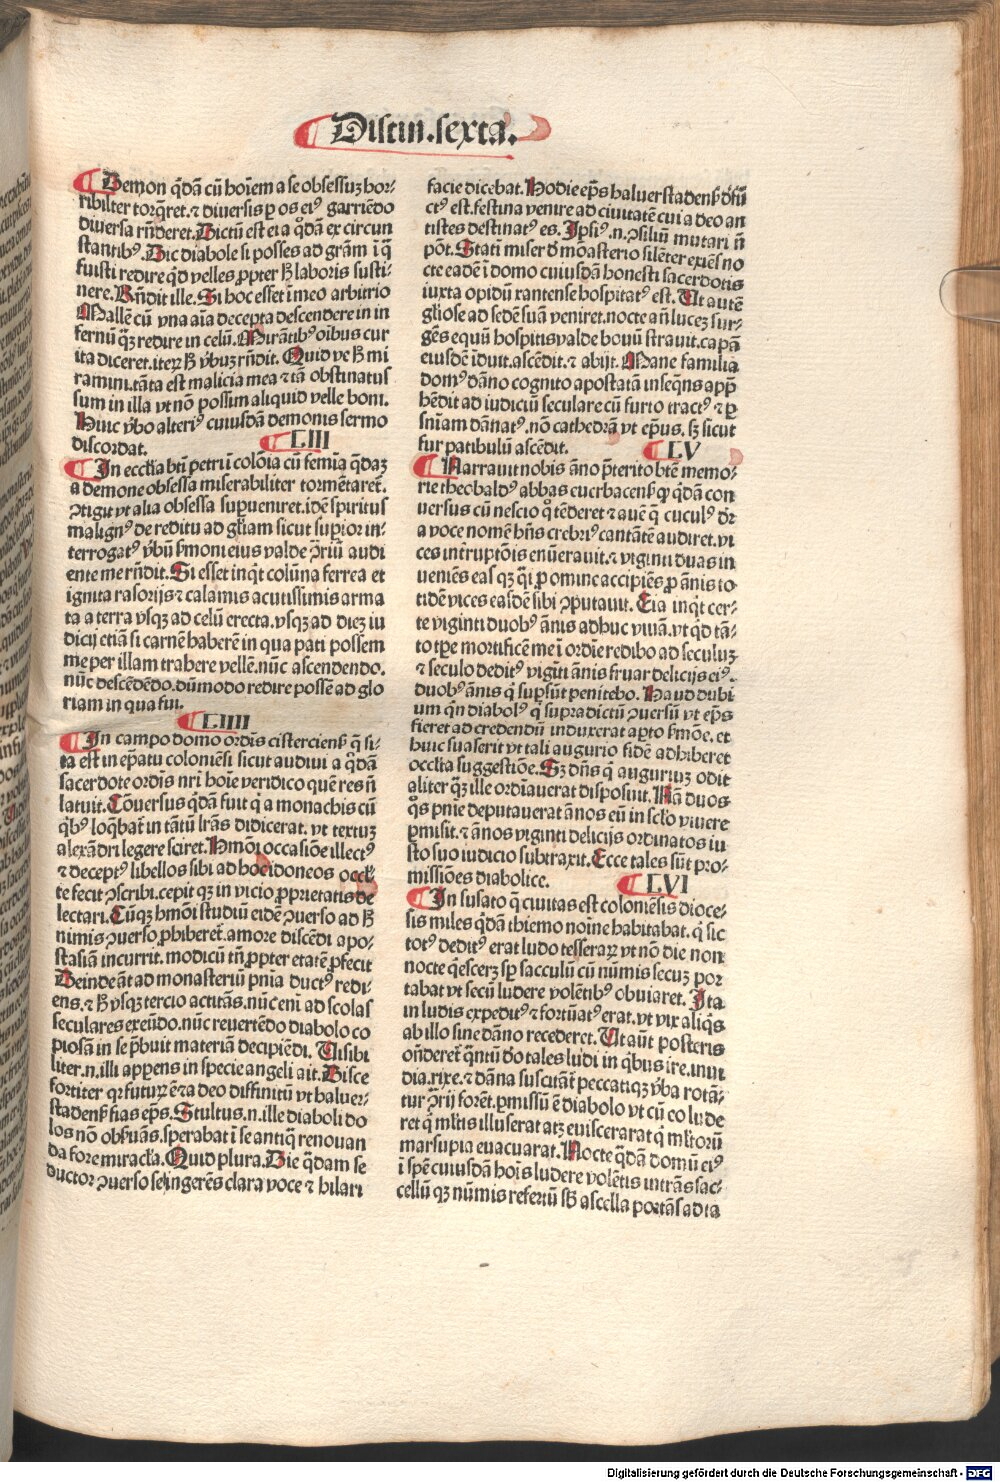 Distin.sexta.
Demon q̄dā cū hoīem a se obsessuʒ hor⸗
ribilter torq̄ret.⁊ diuersis ꝑ os eiꝰ garriēdo
diuersa rn̄deret.Dictū est ei a q̊dā ex circun
stantibꝰ.Dic diabole si posses ad grām ī q̄
fuisti redire qd velles ꝓpter ħ laboris susti⸗
nere.Rn̄dit ille.Si hoc esset ī meo arbitrio
Mallē cū vna aīa decepta descendere in in
fernū q̄ʒ redire in celū.Mirātibꝰ oībus cur
ita diceret.iteꝝ ħ ꝟbuʒ rn̄dit.Quid ve ħ mi
ramini.tāta est malicia mea ⁊ tā obstinatus
sum in illa vt nō possim aliquid velle boni.
Huic ꝟbo alteriꝰ cuiusdā demonis sermo
discordat.
LIII
In ecclīa btī petri ī colōia cū femīa q̄daʒ
a demone obsessa miserabiliter tormētaret̄.
ꝯtigit vt alia obsessa supueniret.idē spiritus
malignꝰ de reditu ad gliam sicut supior in⸗
terrogatꝰ ꝟbū ßmoni eius valde ꝯriū audi
ente me rn̄dit.Si esset inq̇t colūna ferrea et
ignita rasorijs ⁊ calamis acutissimis arma
ta a terra vsqʒ ad celū erecta.vsqʒ ad dieʒ iu
dicij etiā si carnē haberē in qua pati possem
me per illam trahere vellē.nūc ascendendo.
nūc descēdēdo.dūmodo redire possē ad glo
riam in qua fui.
LIIII
In campo domo ordīs cisterciensꝭ q̄ si⸗
ta est in ep̄atu coloniēsi sicut audiui a q̄dā
sacerdote ordīs nr̄i hoīe veridico quē res n̄
latuit.Cōuersus q̄dā fuit q̇ a monachis cū
q̇bꝰ loq̄bat̄ in tātū lr̄as didicerat.vt textuʒ
alexādri legere sciret.Hmōi occasiōe illectꝰ
⁊ deceptꝰ libellos sibi ad hoc idoneos occl̄⸗
te fecit ꝯscribi.cepit qʒ in vicio ꝓprietatis de
lectari.Cūqʒ hmōi studiū eidē ꝯuerso ad ħ
nimis ꝯuerso ꝓhiberet̄.amore discēdi apo⸗
stasiā incurrit.modicū tn̄ ꝓpter etatē ꝓfecit
Deinde āt ad monasteriū pn̄ia ductꝰ redi⸗
ens.⁊ ħ vsqʒ tercio actitās.nūc eni ad scolas
seculares exeūdo.nūc reuertēdo diabolo co
piosā in se pbuit materiā decipiēdi. Visibi
liter.n.illi apparens in specie angeli ait.Disce
fortiter qr futuꝝ ē ⁊ a deo diffinitū vt haluer⸗
stadensꝭ fias ep̄s.Stultus.n.ille diaboli do
los nō obẞuās.sperabat ī se antiq̄ renouan
da fore miracl̄a.Quid plura.Die q̄dam se
ductor ꝯuerso se īgerēs clara voce ⁊ hilari
facie dicebat.Hodie ep̄s haluerstadensꝭ dūfū
ctꝰ est.festina venire ad ciuitatē cui a deo an
tistes destinatꝰ es.Ip̄siꝰ.n.ꝯsiliū mutari n̄
pōt.Statī miser d̄ moasterio silēter exiēs no
cte eadē ī domo cuiusdā honesti sacerdotis
iuxta opidū xantense hospitatꝰ est.Ut autē
gliose ad sedē suā veniret.nocte an̄ luceʒ sur⸗
gēs equū hospitis valde bonū strauit.capā
eiusdē īduit.ascēdit.⁊ abijt.Mane familia
domꝰ dāno cognito apostatā inseq̄ns app̄
hēdit ad iudiciū seculare cū furto tractꝰ ⁊ ꝑ
sn̄iam dānatꝰ.nō cathedrā vt ep̄us.sʒ sicut
fur patibulū ascēdit.
LV
Narrauit nobis āno p̄terito btē memo⸗
rie theobaldꝰ abbas eucrbacensꝭ qꝫ q̄dā con
uersus cū nescio q̊ tēderet ⁊ auē q̄ cuculꝰ dr̄
a voce nomē hn̄s crebriꝰ cantātē audiret.vi
ces int̄ruptōis enūerauit.⁊ viginti duas in
ueniēs eas qʒ q̄i ꝓ omine accipiēs ꝓ ānis to⸗
tidē vices easdē sibi ꝯputauit. Eia inq̇t cer⸗
te viginti duobꝰ ānis adhuc viuā.vt qd tā⸗
to tꝑe mortificē me ī ordīe redibo ad seculuʒ
⁊ seculo deditꝰ vigīti ānis fruar delicijs eiꝰ.
duobꝰ ānis q̇ supsūt penitebo. Haud dubi
um qn̄ diabolꝰ q̇ supradictū ꝯuersū vt ep̄s
fieret ad credendū induxerat apto ßmōe.et
huic suaserit vt tali augurio fidē adhiberet
occl̄ta suggestiōe.Sʒ dn̄s q̇ auguriuʒ odit
aliter q̄ʒ ille ordīauerat disposuit.Nā duos
q̊s pn̄ie deputauerat ānos eū in scl̄o viuere
ꝑmisit.⁊ ānos viginti delicijs ordinatos iu
sto suo iudicio subtraxit.Ecce tales sūt pro⸗
missiōes diabolice.
LVI
In susato q̄ ciuitas est coloniēsis dioce⸗
sis miles q̄dā thiemo noīe habitabat.q̇ sic
totꝰ deditꝰ erat ludo tesseraꝝ vt nō die non
nocte q̄escerʒ sꝑ sacculū cū nūmis secuʒ por
tabat vt secū ludere volētibꝰ obuiaret. Ita
in ludis expeditꝰ ⁊ fortūatꝰ erat.vt vix aliq̇s
ab illo sine dāno recederet. Ut aūt posteris
on̄deret̄ q̄ntū d̄o tales ludi in q̇bus ire.inui
dia.rixe.⁊ dāna suscitāt̄ peccatiqʒ ꝟba rotā⸗
tur ꝯrij forēt.ꝑmissū ē diabolo vt cū eo lude
ret q̇ ml̄tis illuserat atʒ euiscerarat q̇ ml̄torū
marsupia euacuarat.Nocte q̄dā domū eiꝰ
ī spē cuiusdā hoīs ludere volētis intrās sac⸗
cellū qʒ nūmis refertū sb̄ ascella portās ad ta
Digitalisierung gefördert durch die Deutsche Forschungsgemeinschaft - DFG